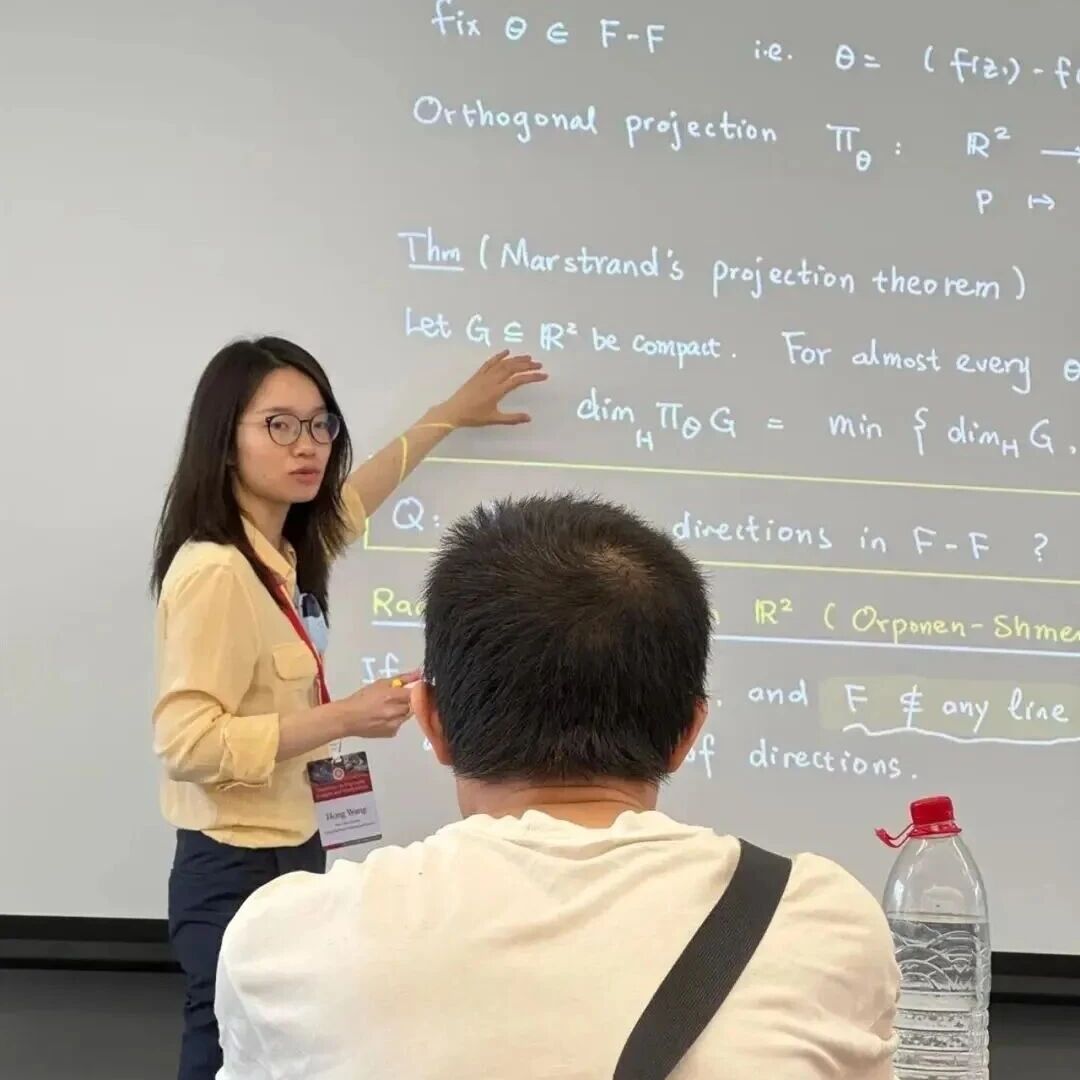 fix θ ∈ F-F i.e. θ = (f(z₁) - f(
Orthogonal projection π_θ : ℝ² →
p ↦
Thm (Marstrand's projection theorem)
Let G ⊆ ℝ² be compact. For almost every θ
dim_H π_θ G = min { dim_H G,
Q: directions in F-F ?
ℝ² (Orponen-Shme
If . and F ⊄ any line
of directions.
Hong Wang